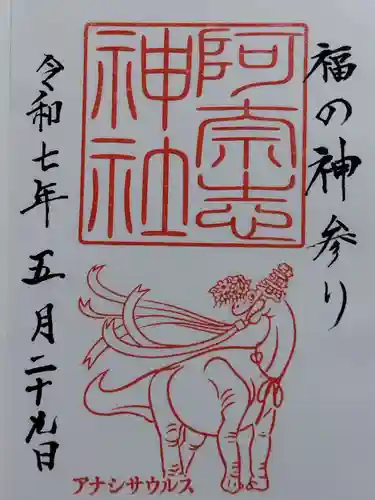 福の神参り
阿宗
志
神社
令和七年五月二十九日
アナシサウルス